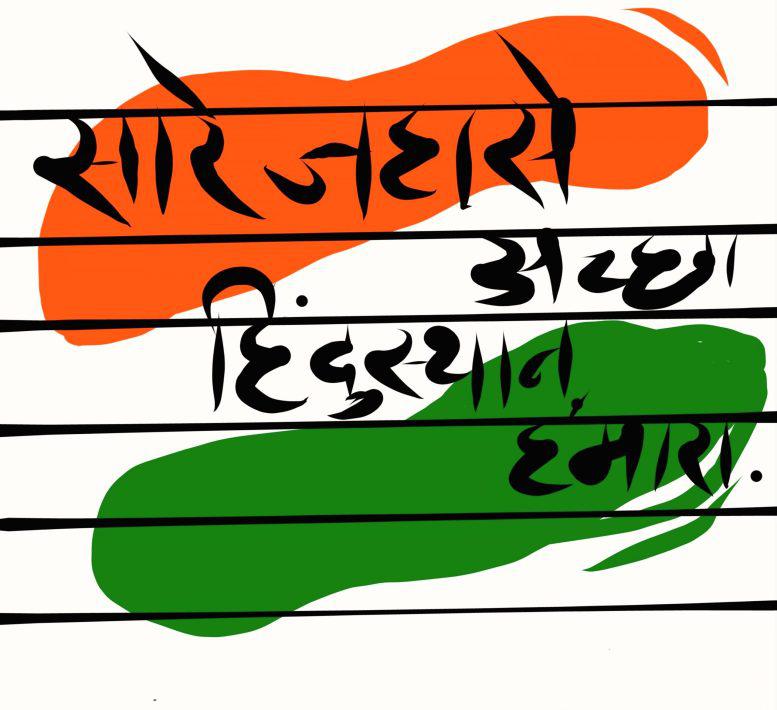 सारे जहासे
अच्छा
हिंदुस्थान
हंमारा.